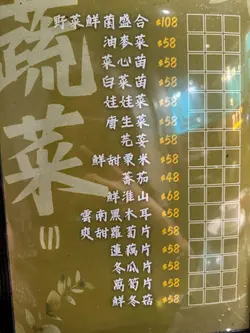 蔬菜(II)
野菜鮮菌盛合 $108
油麥菜 $58
菜心苗 $58
白菜苗 $58
娃娃菜 $58
唐生菜 $58
芫荽 $58
鮮甜粟米 $58
蕃茄 $48
鮮淮山 $68
雲南黑木耳 $58
爽甜蘿蔔片 $58
蓮藕片 $58
冬瓜片 $58
萵筍片 $58
鮮冬菇 $58